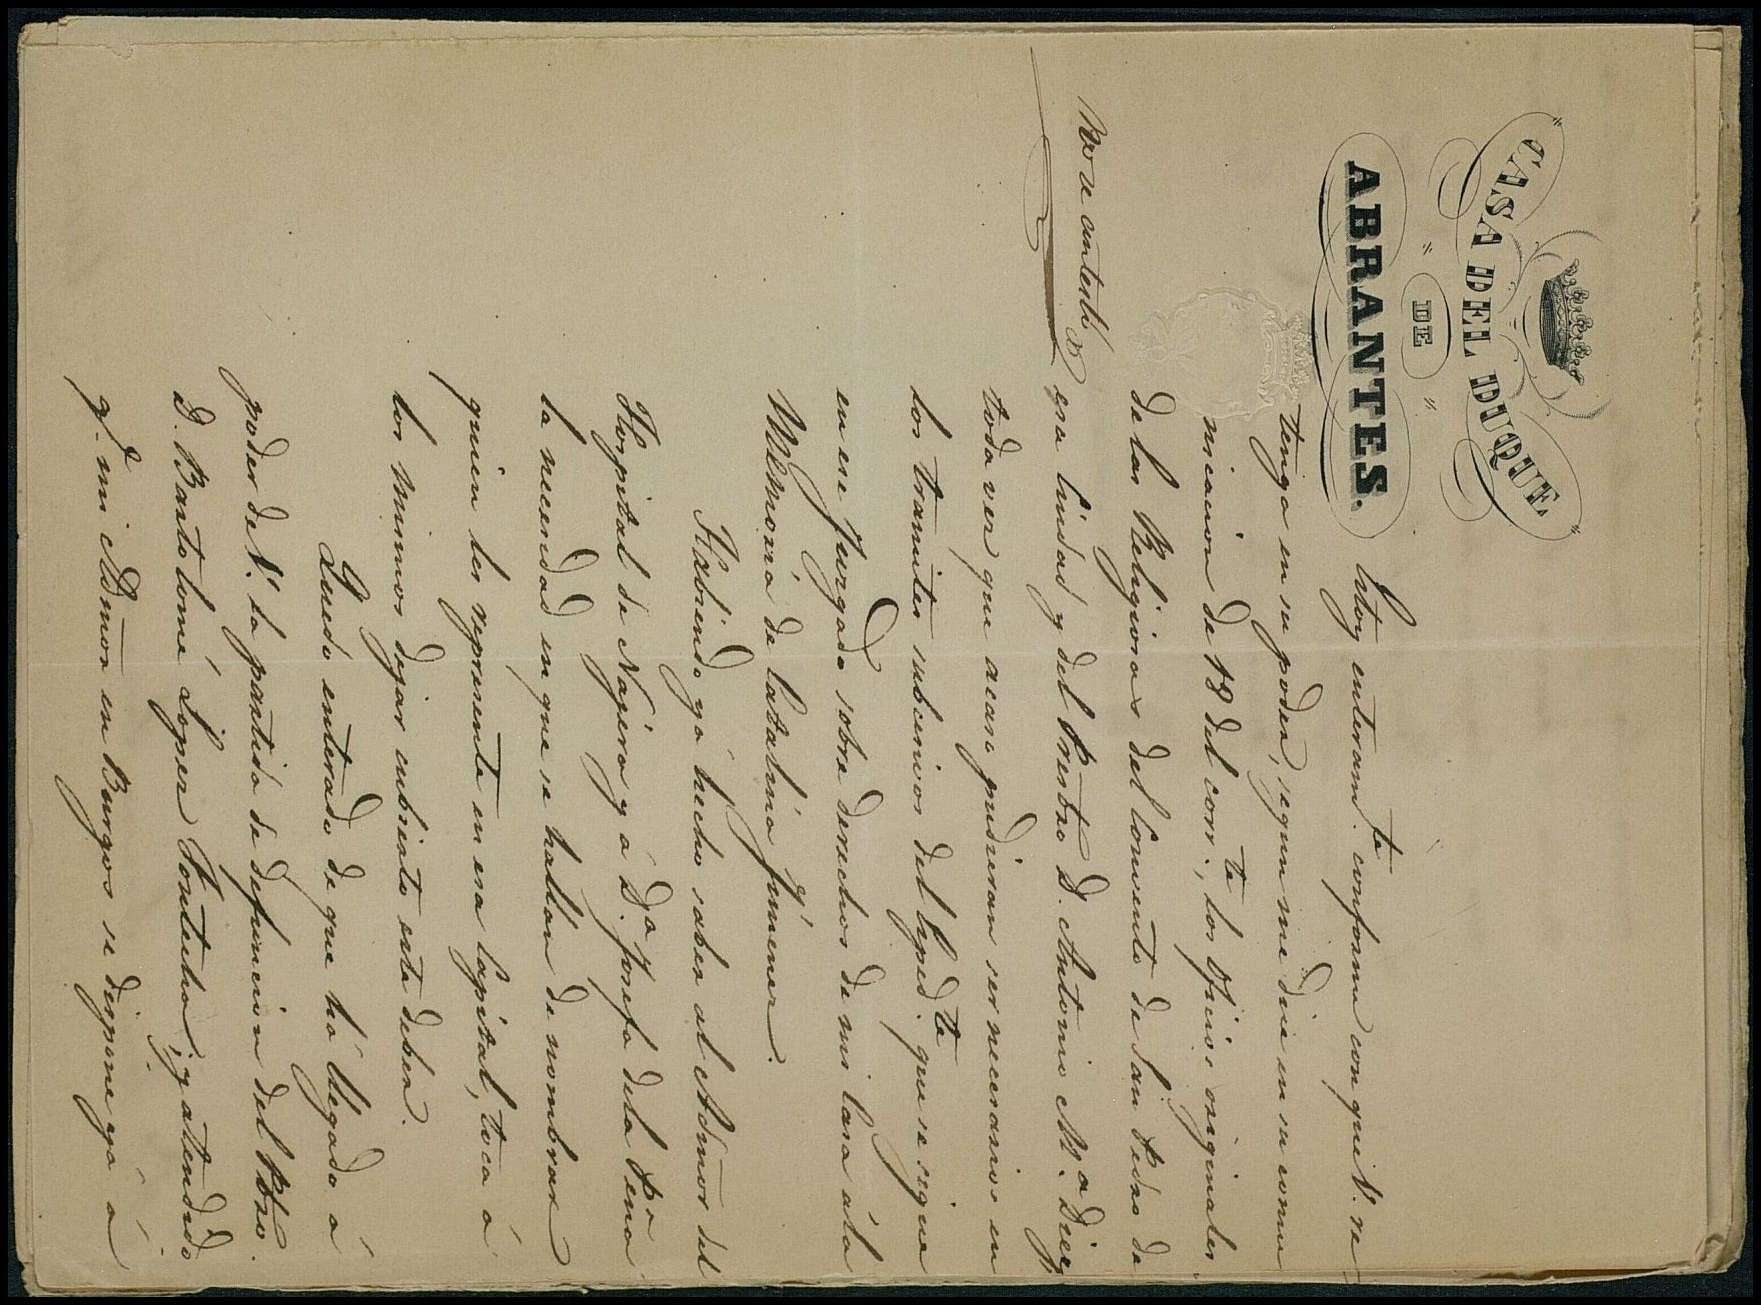 CASA DEL DUQUE
DE
ABRANTES.
No se contestó
Estoy enteram.te conforme con que V. re
tenga en su poder, segun me dice en su comu
nicacion de 18 del corr.te, los oficios originales
de las Religiosas del Convento de San Pedro de
esa Ciudad y del Presbro D. Antonio M.a Diez
toda vez que acaso pudieran ser necesarios en
los tramites subcesivos del Exped.te que se sigue
en ese Juzgado sobre derechos de mi Casa á la
Memoria de Catalina Jimenez.
Habiendo yá hecho saber al Admor del
Hospital de Nagera y á D.a Josefa de la Pena
la necesidad en que se hallan de nombrar
quien les represente en esa Capital, toca á
los mismos dejar cubierto este deber.
Quedo enterado de que há llegado á
poder de V. la partida de defuncion del Pbro.
D. Bartolomé Lopez Fontecha, y atendido
q.e mi Admor en Burgos se dispone yá á